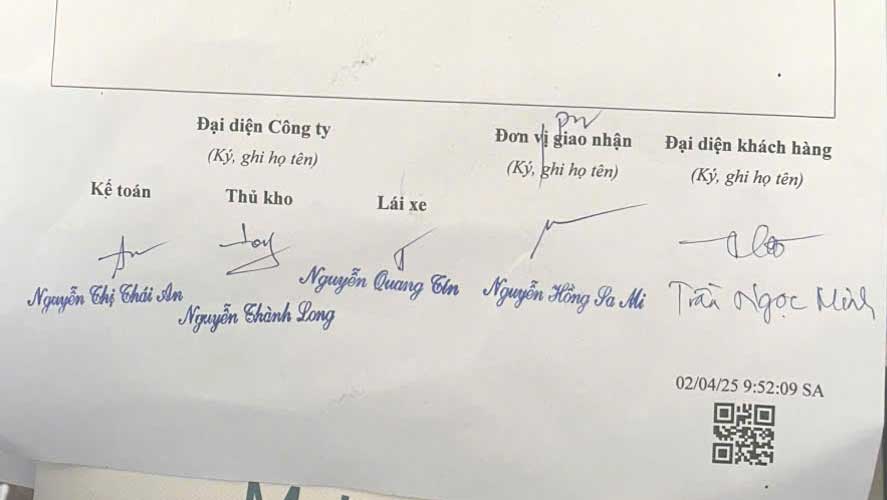 Đại diện Công ty
(Ký, ghi họ tên)
Đơn vị giao nhận
(Ký, ghi họ tên)
Đại diện khách hàng
(Ký, ghi họ tên)
Kế toán
Thủ kho
Lái xe
Nguyễn Thị Thái An
Nguyễn Thành Long
Nguyễn Quang Tín
Nguyễn Hồng Sa Mi
Trần Ngọc Minh
02/04/25 9:52:09 SA